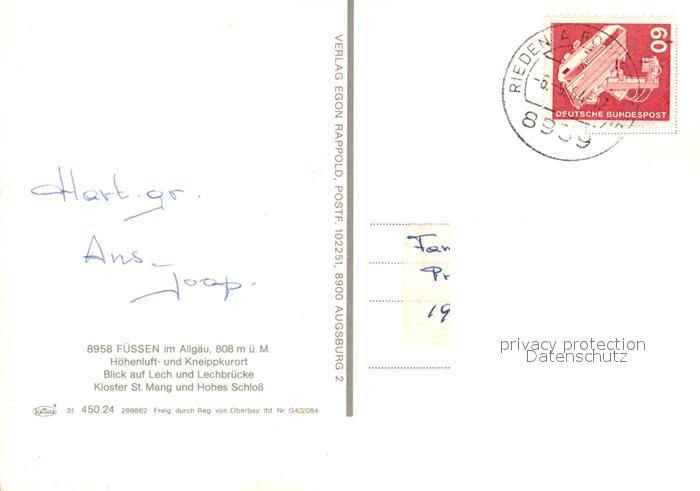 Hart. gr.
Ans_
Joop.
8958 FÜSSEN im Allgäu, 808 m ü. M.
Höhenluft- und Kneippkurort
Blick auf Lech und Lechbrücke
Kloster St. Mang und Hohes Schloß
Krüger 31. 450.24 269862 Freig. durch Reg. von Oberbay. lfd. Nr. G43/2084
VERLAG EGON RAPPOLD, POSTF. 102251, 8900 AUGSBURG 2
RIEDEN A.
8959
60
DEUTSCHE BUNDESPOST
Fam
Pr
19
privacy protection
Datenschutz